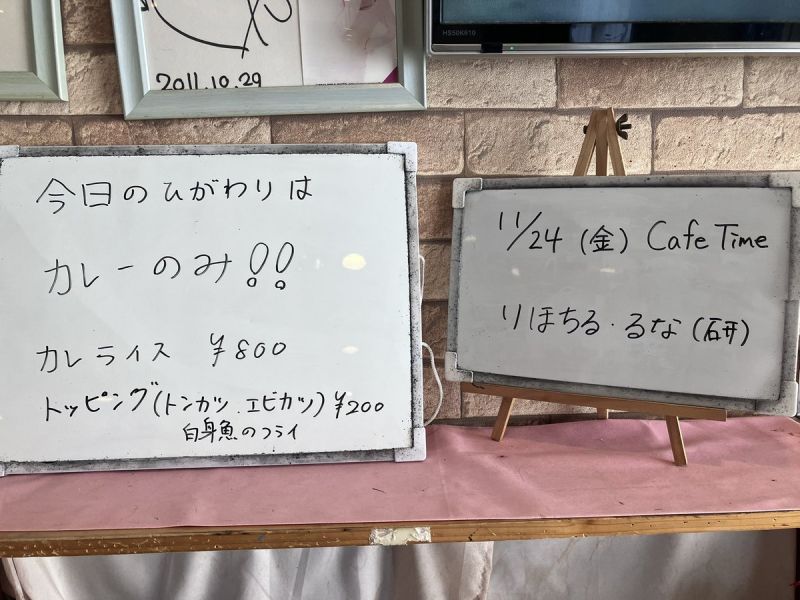 2011.10.29
HS50K610
今日のひがわりは
カレーのみ!!
カレライス ¥800
トッピング(トンカツ.エビカツ)¥200
白身魚のフライ
11/24 (金) Cafe Time
りほちる・るな(研)